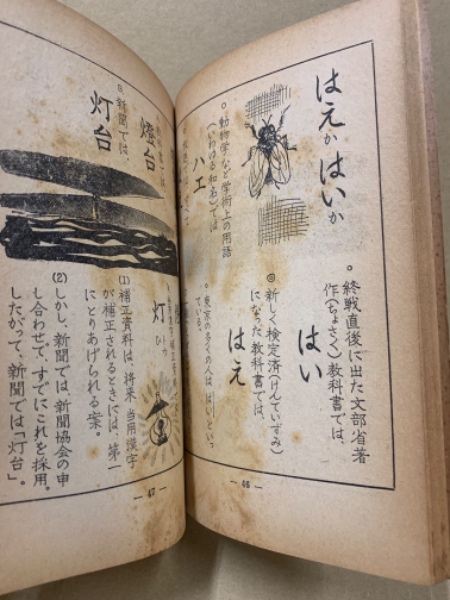 はえかはいか
。終戦直後に出た文部省著
作(ちょさく)教科書では、
はい
◎新しく検定済(けんていずみ)
になった教科書では、
はえ
。動物学など学術上の用語
(いわゆる和名)では
ハエ
。東京の多くの人は、はいといっ
ている。
— 46 —
燈台
新聞では、
灯台
灯
(1) 補正資料は、将来、当用漢字
が補正されるときには、第一
にとりあげられる案。
(2) しかし、新聞では、新聞協会の申
し合わせで、すでにこれを採用。
したがって、新聞では「灯台」。
— 47 —